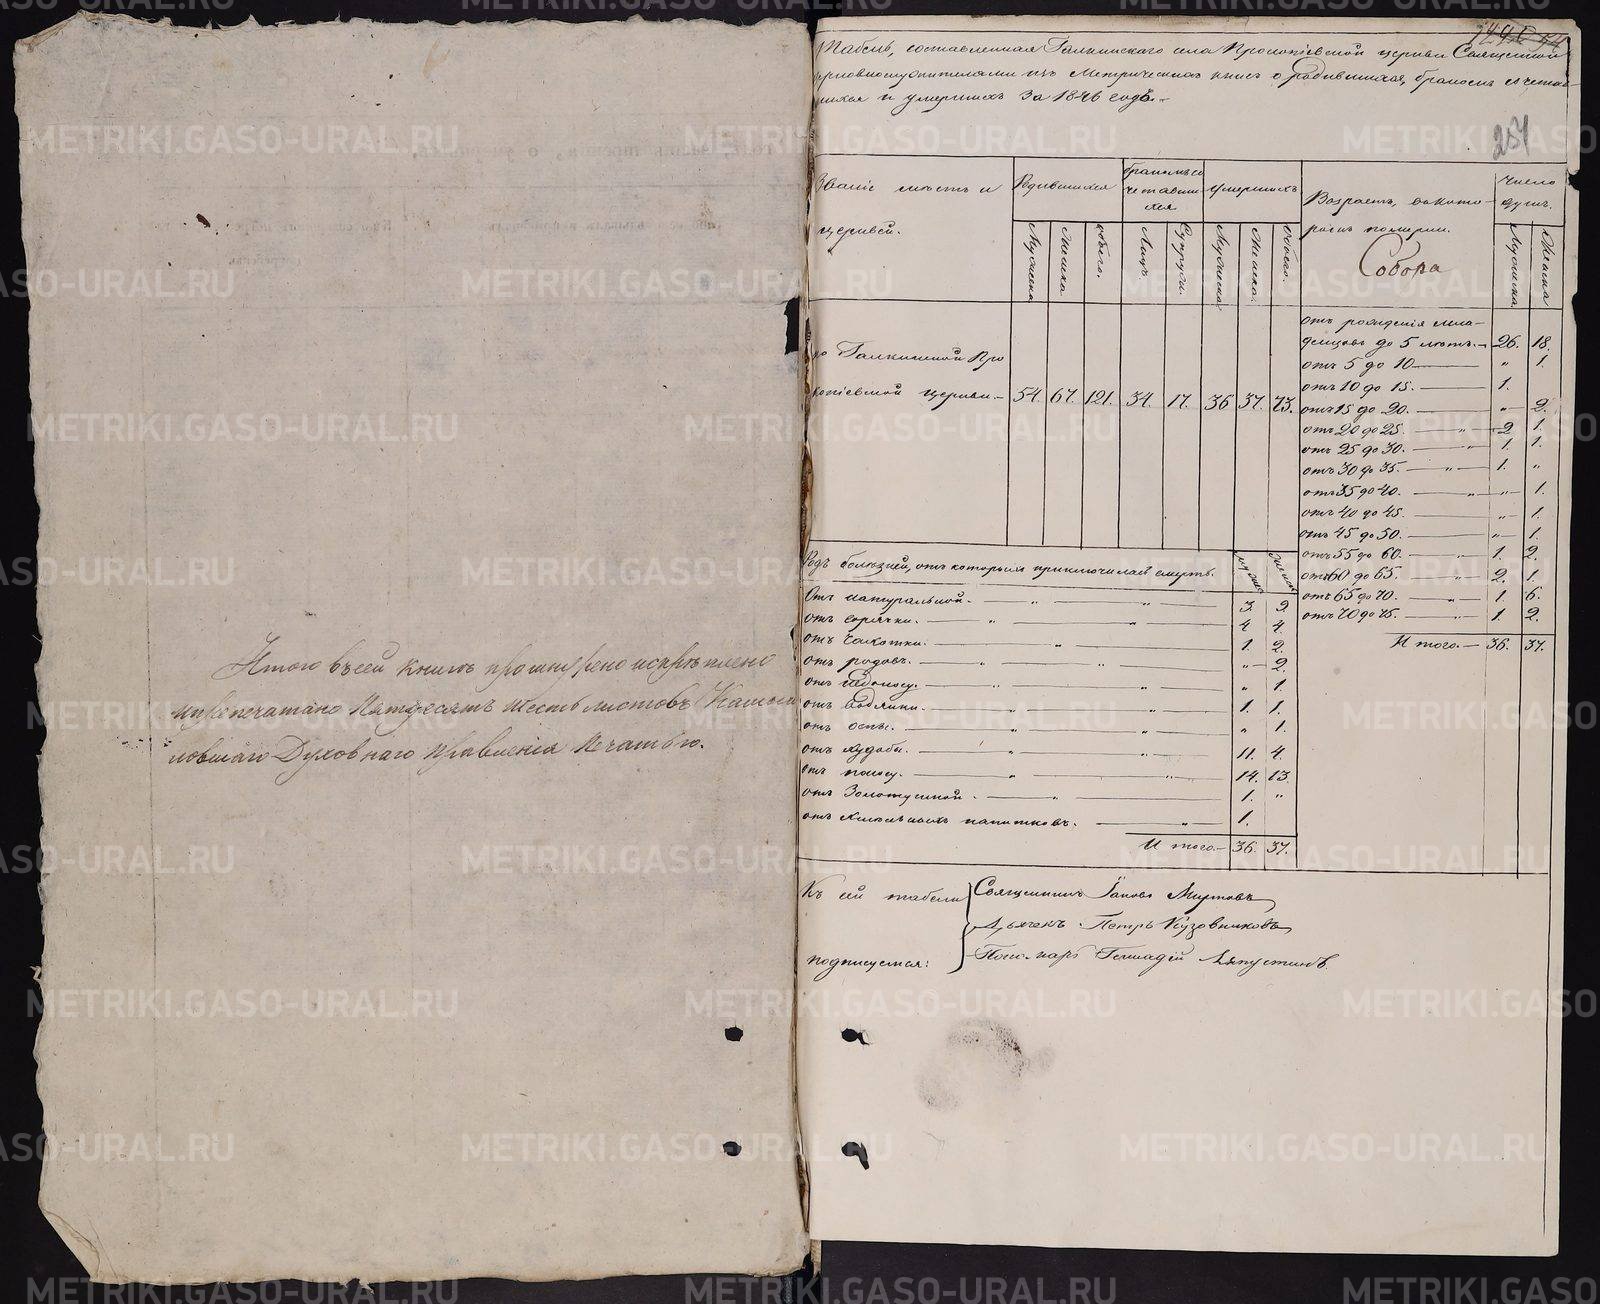 Итого въ сей книгѣ прошнурено и скрѣплено
и препечатано Пятдесятъ шесть листовъ Камыш
ловскаго Духовнаго Правленія Печатью.
257
Табель, составленная Галкинскаго села Прокопіевской церкви Священно
церковнослужителями изъ Метрическихъ книгъ о родившихся, бракомъ сочетав-
шихся и умершихъ За 1846 годъ.
Званіе мѣстъ и церквей.
Родившихся
Мужеска
Женска
Обоего.
бракомъ со
четавши
хся
Лицъ
Супруж.
умершихъ
Мужеска
Женска.
Обоего.
Возрастъ, въ кото-
ромъ померли.
Собора
Число
душъ.
Мужеска
Женска
по Галкинской Про
копіевской церкви.- 54. 67. 121. 34. 17. 36 37. 73.
отъ рожденія мла-
денцовъ до 5 лѣтъ.- 26. 18.
отъ 5 до 10 „ 1.
отъ 10 до 15. 1.
отъ 15 до 20. „ 2.
отъ 20 до 25. „ 2 1.
отъ 25 до 30. „ 1. 1.
отъ 30 до 35. „ 1. „
отъ 35 до 40. „ „ 1.
отъ 40 до 45. „ 1.
отъ 45 до 50. „ 1.
отъ 55 до 60. „ 1. 2.
отъ 60 до 65. „ 2. 1.
отъ 65 до 70. „ 1. 6.
отъ 70 до 75. „ 1. 2.
Итого.- 36. 37.
Родъ болѣзней, отъ которыхъ приключилась смерть.
муж.
женск.
Отъ натуральной. „ „ 3. 9.
отъ горячки. „ „ 4 4.
отъ чахотки. „ 1. 2.
отъ родовъ. „ „ „ 2.
отъ „ „ „ 1.
отъ водянки. „ „ 1. 1.
отъ оспы. „ „ „ 1.
отъ худобы. „ „ 11. 4.
отъ поносу. „ „ 14. 13.
отъ Золотушной. „ 1. „
отъ хмѣльныхъ напитковъ. „ 1.
Итого.- 36. 37.
Къ сей табели
подписуемся:
Священникъ Іаковъ Миртовъ
Дьячекъ Петръ Кузовниковъ
Пономарь Геннадій Ляпустинъ.
METRIKI.GASO-URAL.RU